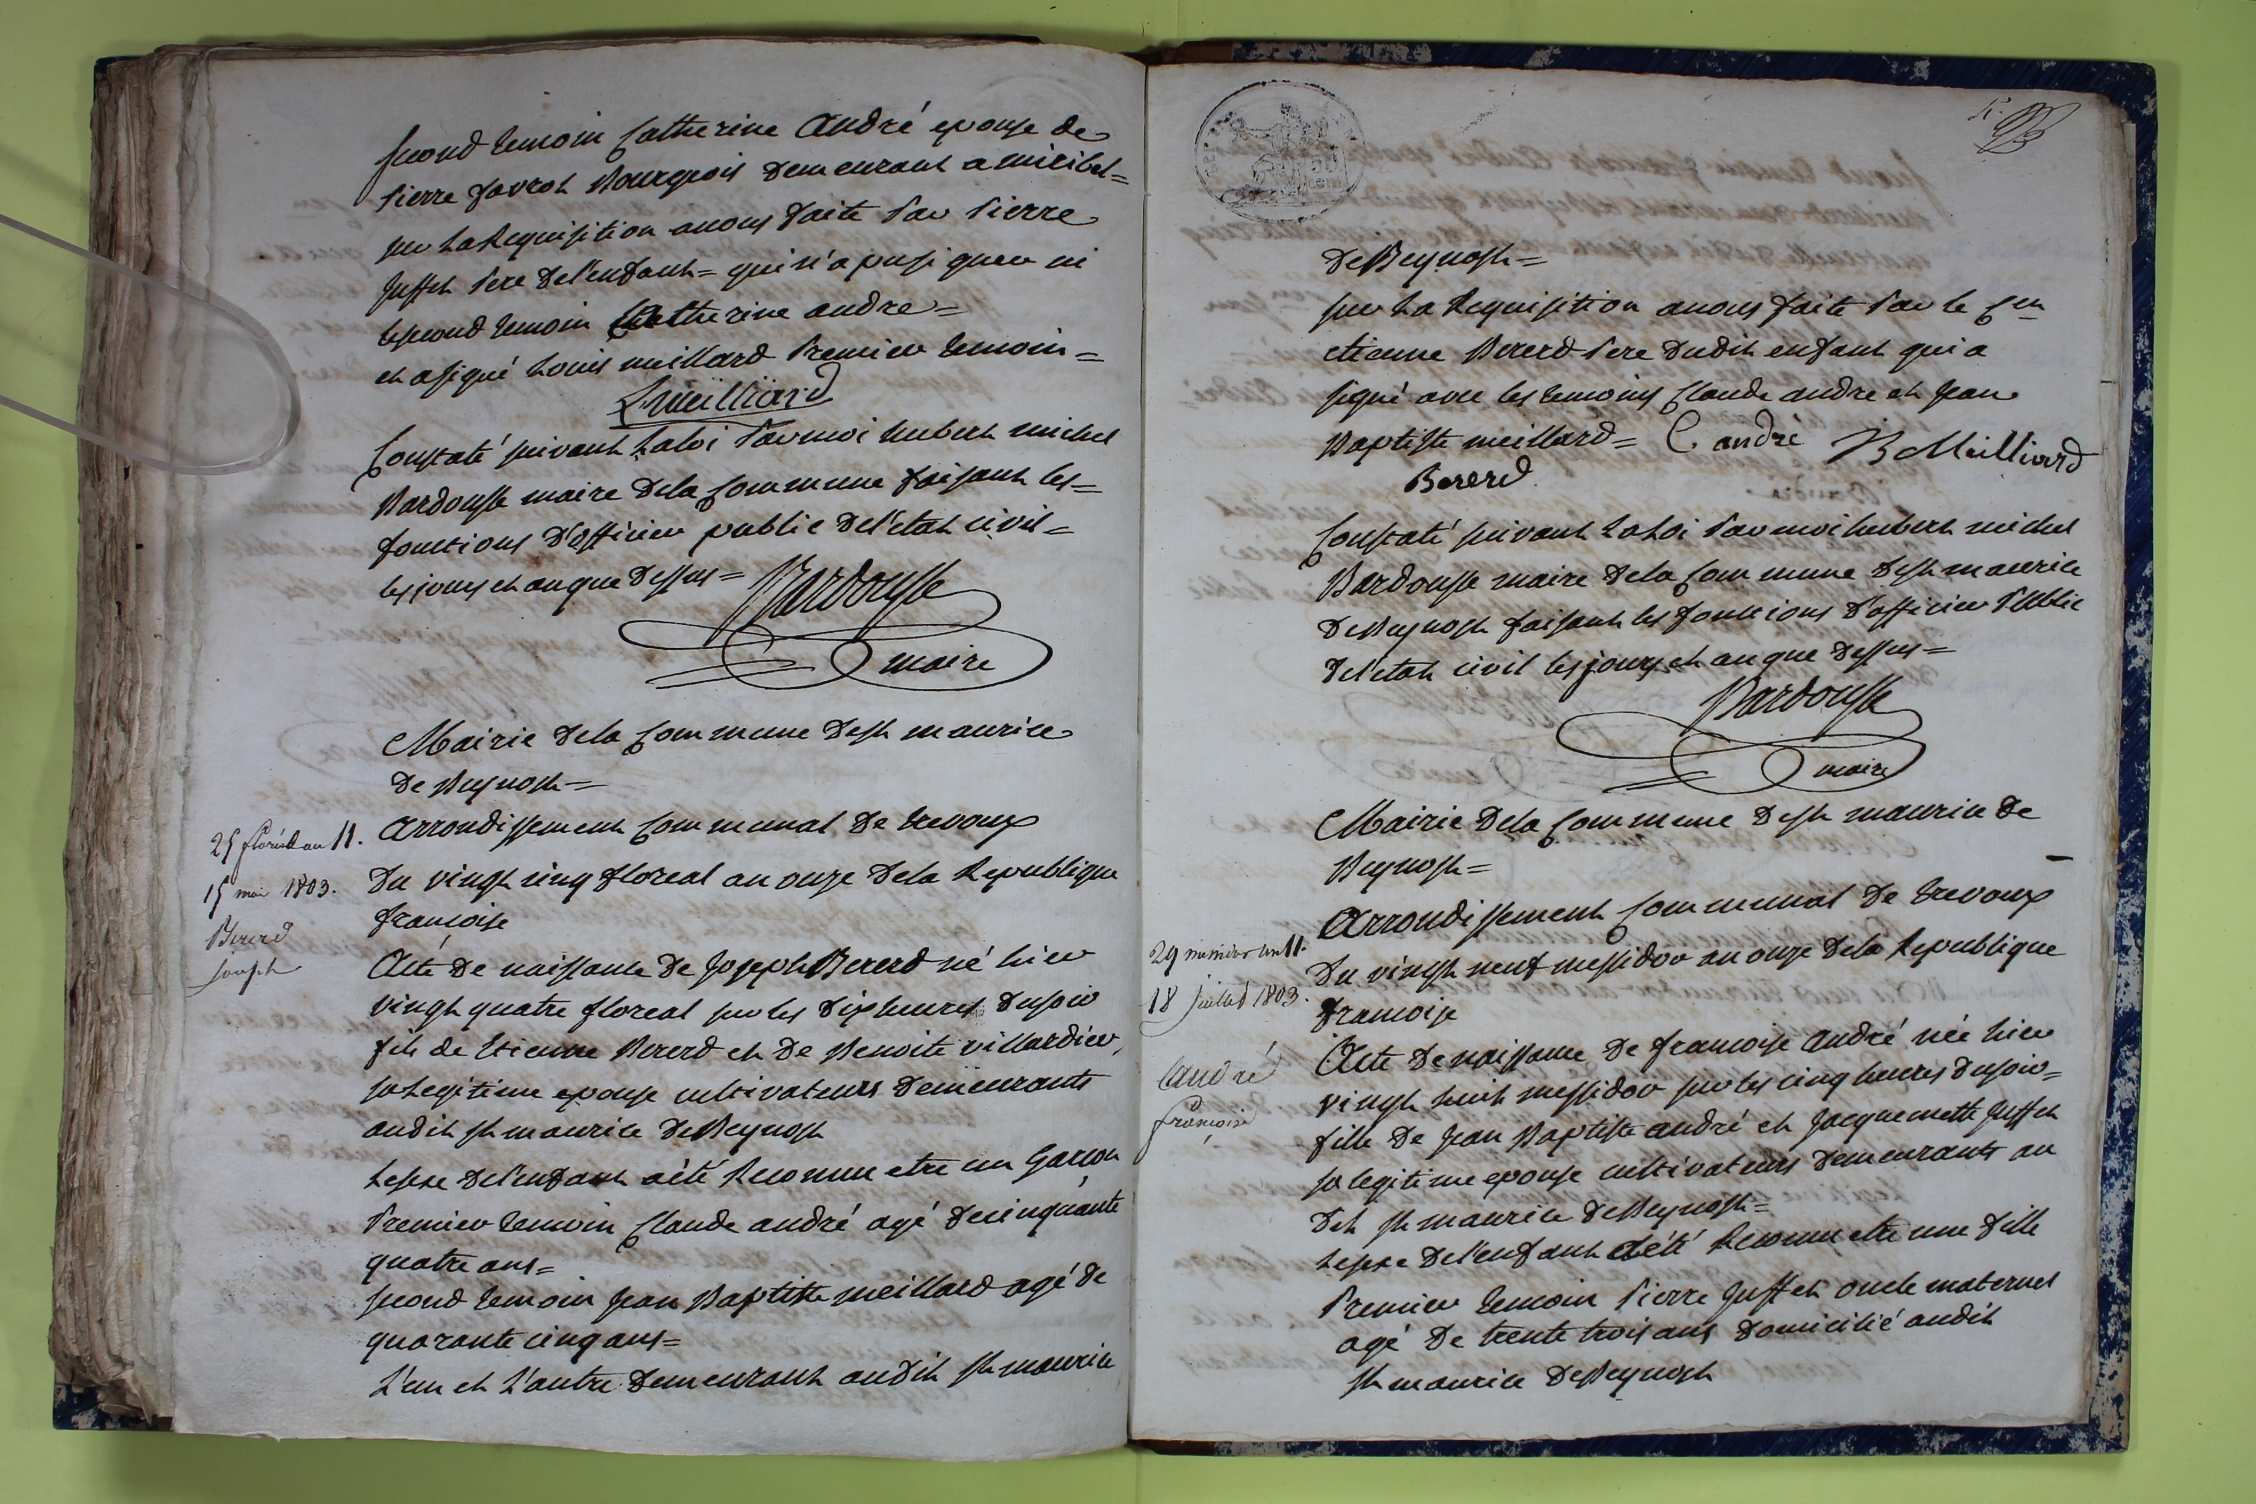 second temoin Catherine André epouse de
Pierre favrot Bourgeois demeurant a miribel =
sur La Requisition anous faite Par Pierre
Juffet Pere de l'enfant = qui n'a pu signer ni
le second temoin Catherine andre =
et a signé Louis meillard Premier temoin =
L meilliard
Constaté suivant La loi Par moi hubert michel
Bardousse maire de la Commune faisant les =
fonctions d'officier public de l'etat civil =
les jours et an que dessus = Bardousse
maire
Mairie de la Commune de St maurice
de Beynost =
arrondissement Communal de trevoux
25 floréal an 11.
Du vingt cinq floreal an onze de la Republique
15 mai 1803.
francoise
Bererd
Joseph
Acte de naissance de Joseph Bererd né hier
vingt quatre floreal sur les dix heures du soir
fils de Etienne Bererd et de Benoite villardier,
sa Legitime epouse cultivateurs demeurants
audit St maurice de Beynost
Le sexe de l'enfant a été Reconnu etre un Garcon
Premier temoin Claude andré agé de cinquante
quatre ans =
second temoin Jean Baptiste meillard agé de
quarante cinq ans =
L'un et L'autre demeurant audit St maurice
de Beynost =
sur La Requisition anous faite Par le Cen
etienne Bererd Pere dudit enfant qui a
signé avec les temoins Claude andre et Jean
Baptiste meillard = C andré B Meilliard
Bererd
Constaté suivant La Loi Par moi hubert michel
Bardousse maire de la Commune de St maurice
de Beynost faisant les fonctions d'officier Public
de l'etat civil les jours et an que dessus =
Bardousse
maire
Mairie de la Commune de St maurice de
Beynost =
arrondissement Communal de trevoux
29 messidor an 11.
Du vingt neuf messidor an onze de la Republique
18 juillet 1803.
francoise
André
francoise
Acte de naissance de francoise André née hier
vingt huit messidor sur les cinq heures du soir =
fille de Jean Baptiste andré et Jacquemette Juffet
sa legitime epouse cultivateurs demeurants au
dit St maurice de Beynost =
Le sexe de l'enfant a été Reconnu etre une fille
Premier temoin Pierre Juffet oncle maternel
agé de trente trois ans domicilié audit
St maurice de Beynost